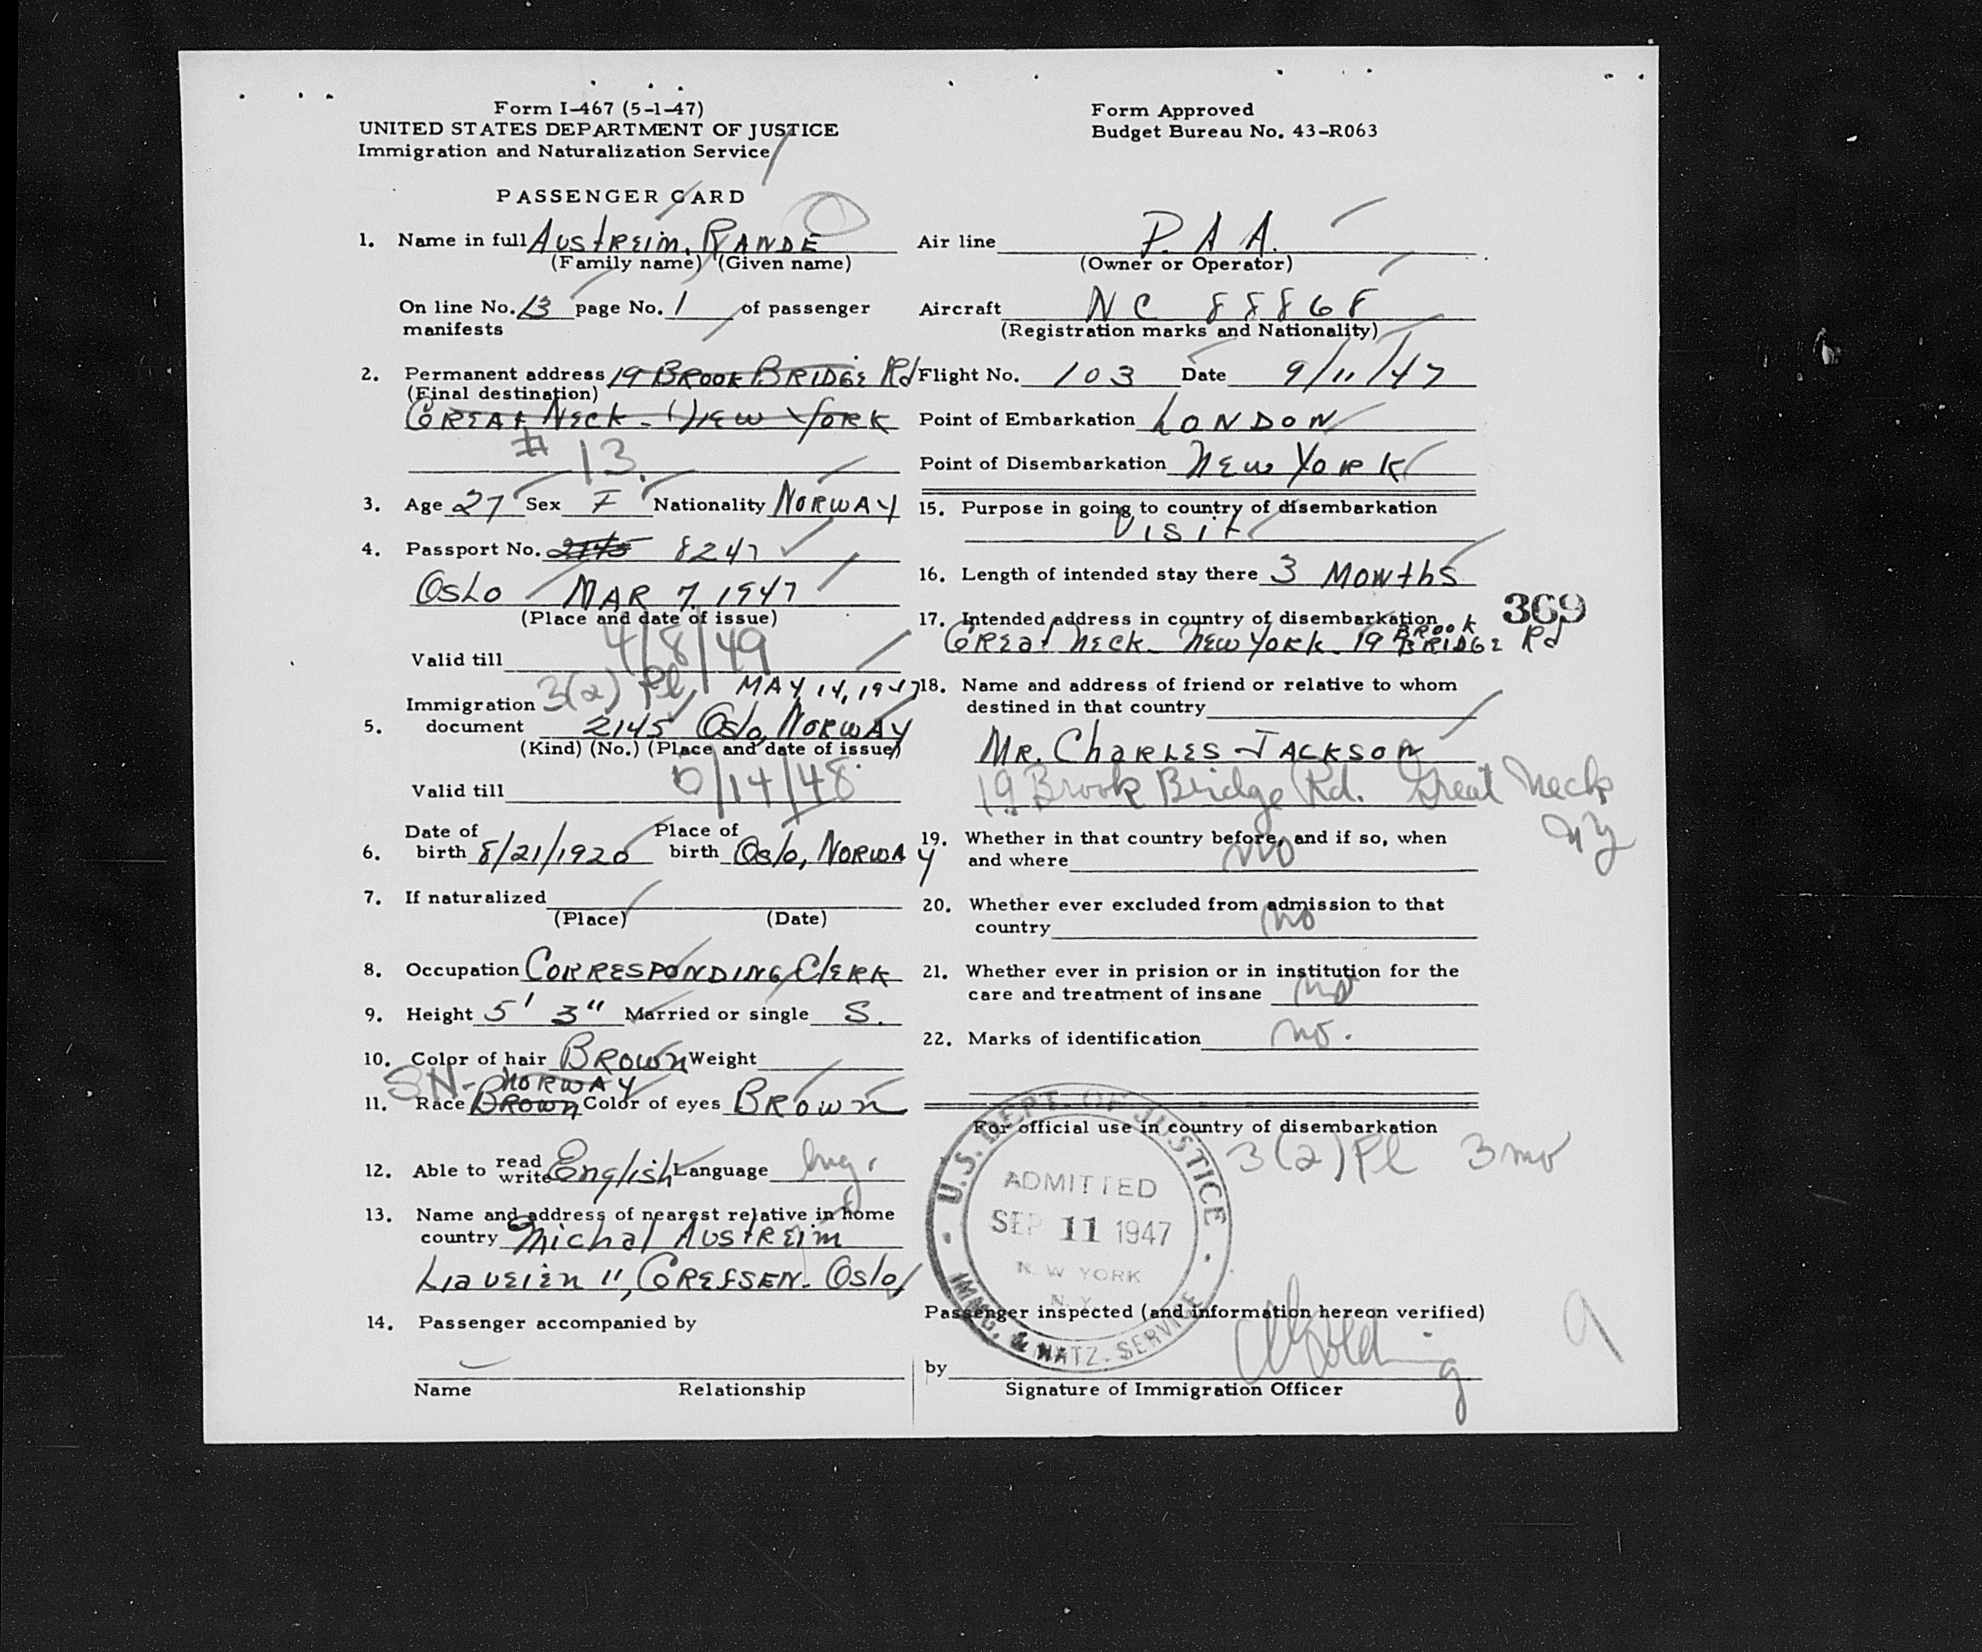 Form I-467 (5-1-47)
UNITED STATES DEPARTMENT OF JUSTICE
Immigration and Naturalization Service
Form Approved
Budget Bureau No. 43-R063
PASSENGER CARD
1. Name in full AUSTREIM, RANDE
(Family name) (Given name)
On line No. 13 page No. 1 of passenger
manifests
2. Permanent address 19 BROOK BRIDGE Rd
(Final destination)
GREAT NECK - NEW YORK
# 13.
3. Age 27 Sex F Nationality NORWAY
4. Passport No. 2145 8247
OSLO MAR 7 1947
(Place and date of issue)
Valid till 4/8/49
3(2) Pl, MAY 14, 1947
Immigration
5. document 2145 Oslo, NORWAY
(Kind) (No.) (Place and date of issue)
Valid till 5/14/48
6. Date of birth 8/21/1920 Place of birth Oslo, NORWAY
7. If naturalized
(Place) (Date)
8. Occupation CORRESPONDING ClERK
9. Height 5' 3" Married or single S.
10. Color of hair BROWN Weight
SN- NORWAY
11. Race BROWN Color of eyes BROWN
12. Able to read write English Language Eng.
13. Name and address of nearest relative in home
country Michal AUSTREIM
Liaveien 11, GREFSEN. Oslo
14. Passenger accompanied by
Name Relationship
Air line P. A A.
(Owner or Operator)
Aircraft NC 88868
(Registration marks and Nationality)
Flight No. 103 Date 9/11/47
Point of Embarkation LONDON
Point of Disembarkation NEW YORK
15. Purpose in going to country of disembarkation
Visit
16. Length of intended stay there 3 MONthS
369
17. Intended address in country of disembarkation
GREAT NECK - NEW YORK - 19 BROOK BRIDGE Rd
18. Name and address of friend or relative to whom
destined in that country
MR. ChARLES JACKSON
19 Brook Bridge Rd. Great Neck
NY
19. Whether in that country before, and if so, when
and where no
20. Whether ever excluded from admission to that
country no
21. Whether ever in prision or in institution for the
care and treatment of insane no
22. Marks of identification no.
For official use in country of disembarkation
3(2) Pl 3 mo
U.S. DEPT. OF JUSTICE
ADMITTED
SEP 11 1947
NEW YORK
N.Y.
IMMG. & NATZ. SERVICE
Passenger inspected (and information hereon verified)
by
Signature of Immigration Officer